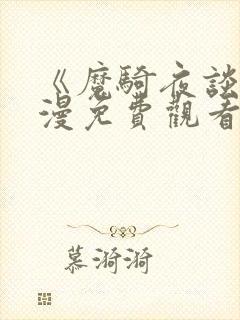 《魔騎夜談
漫免費觀看
慕漪漪